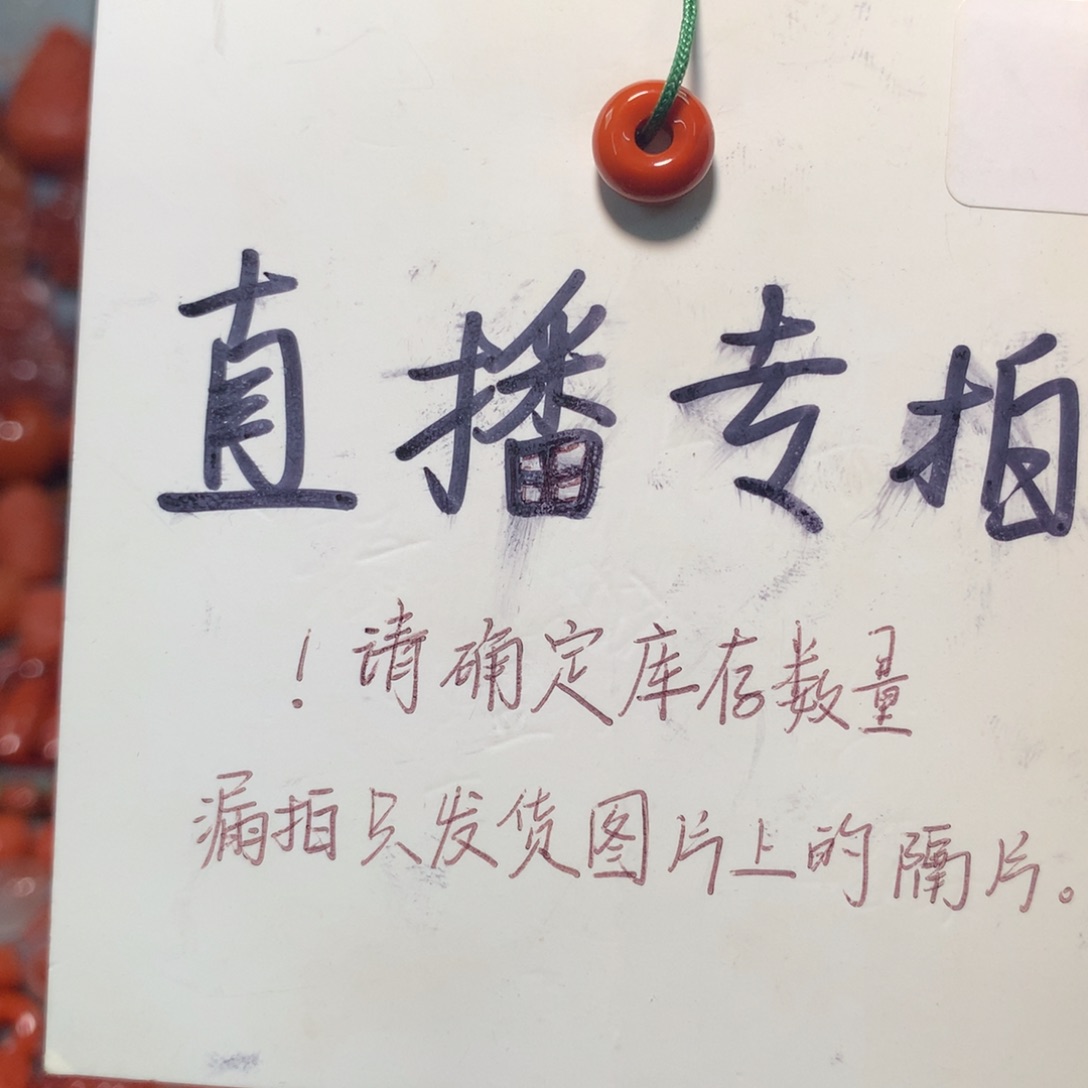 直播专拍
！请确定库存数量
漏拍只发货图片上的隔片。